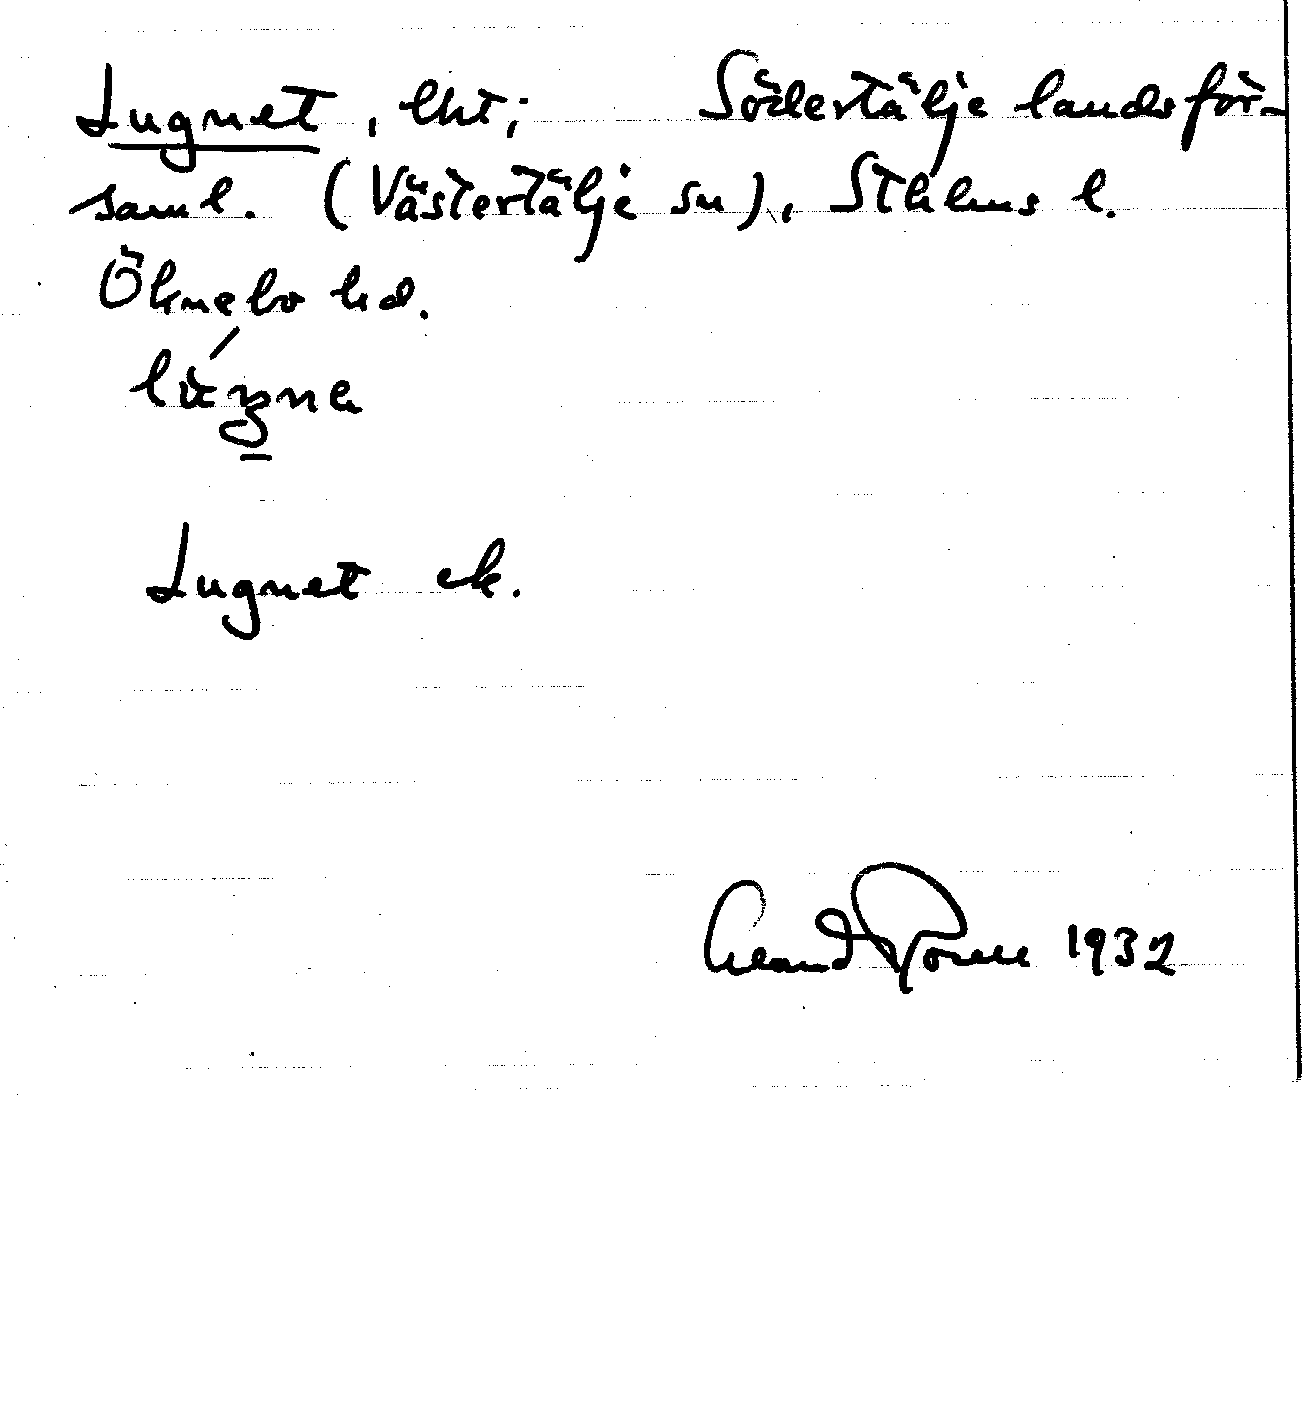 Lugnet, lht; Södertälje landsför-
saml. (Västertälje sn), Sthlms l.
Öknebo hd.
Lugnet ek.
1932